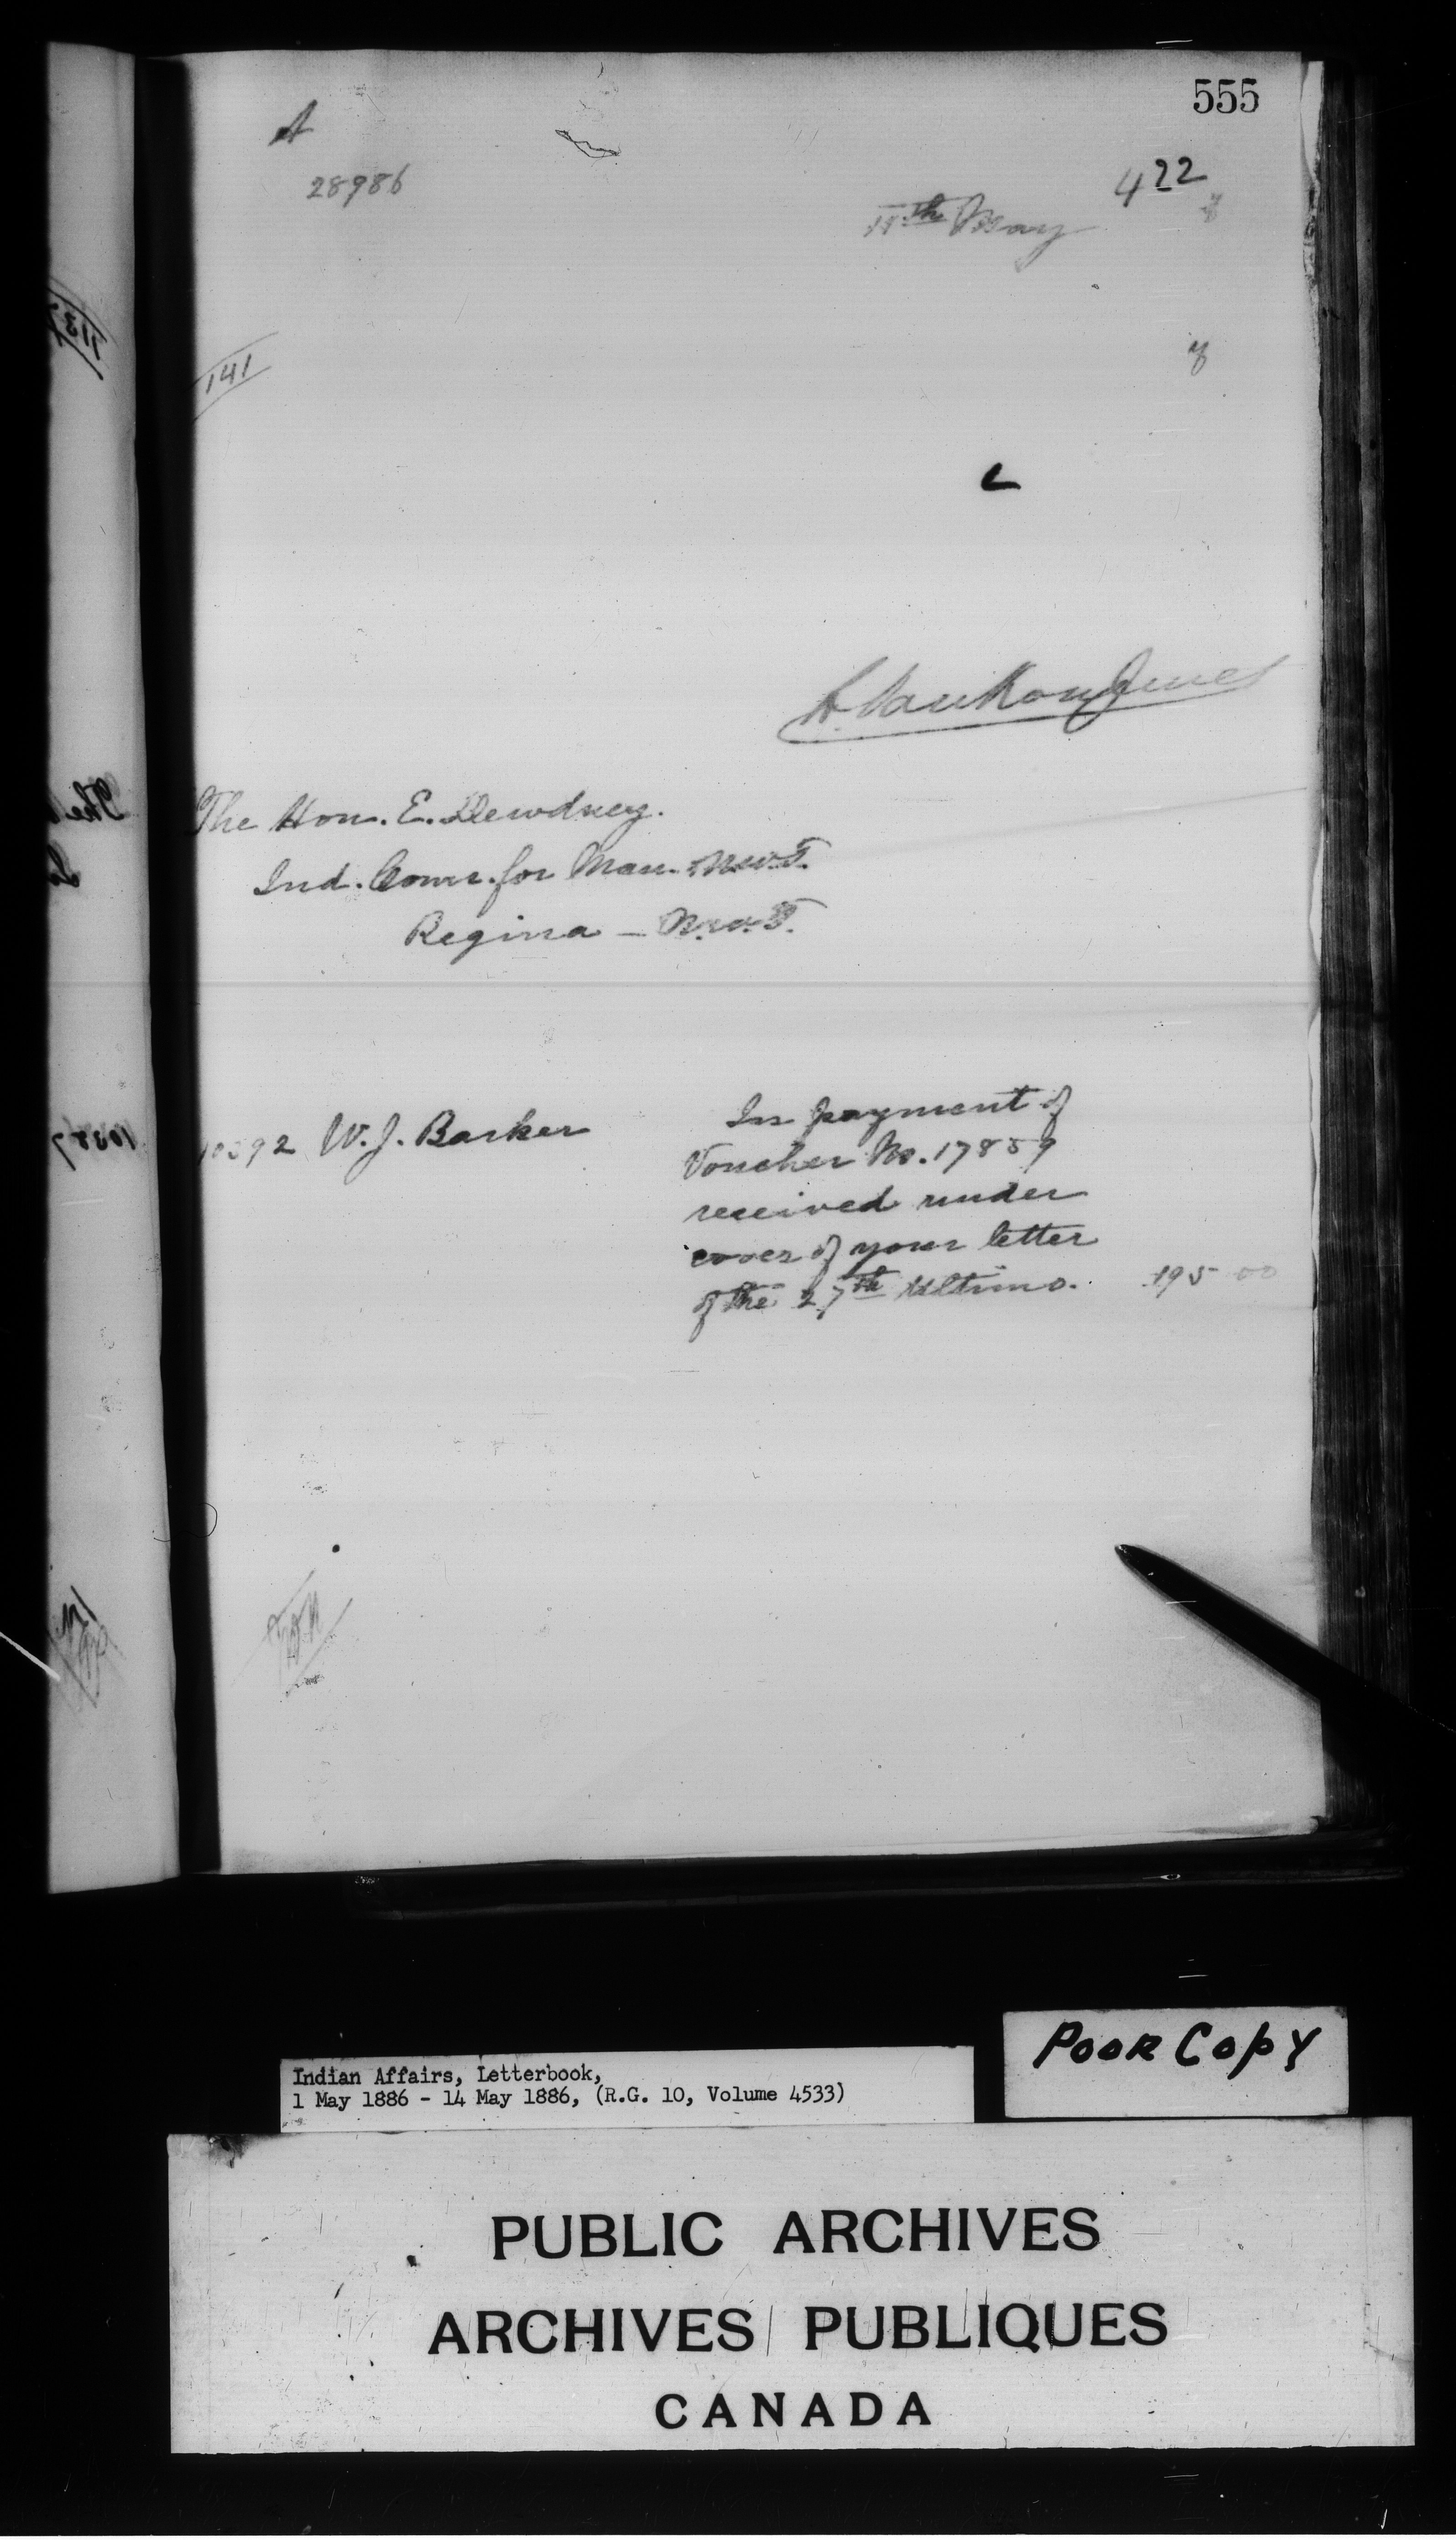 555
A
28986
422
11th May
6
141
6
L. VanKoughnet
The Hon. E. Dewdney.
Ind. Comr. for Man. N.W.T.
Regina – N.W.T.
10392 W. J. Barker
In payment of
Voucher No. 17859
received under
cover of your letter
of the 27th Ultimo. 195 00
Indian Affairs, Letterbook,
1 May 1886 - 14 May 1886, (R.G. 10, Volume 4533)
POOR COPY
PUBLIC ARCHIVES
ARCHIVES PUBLIQUES
CANADA